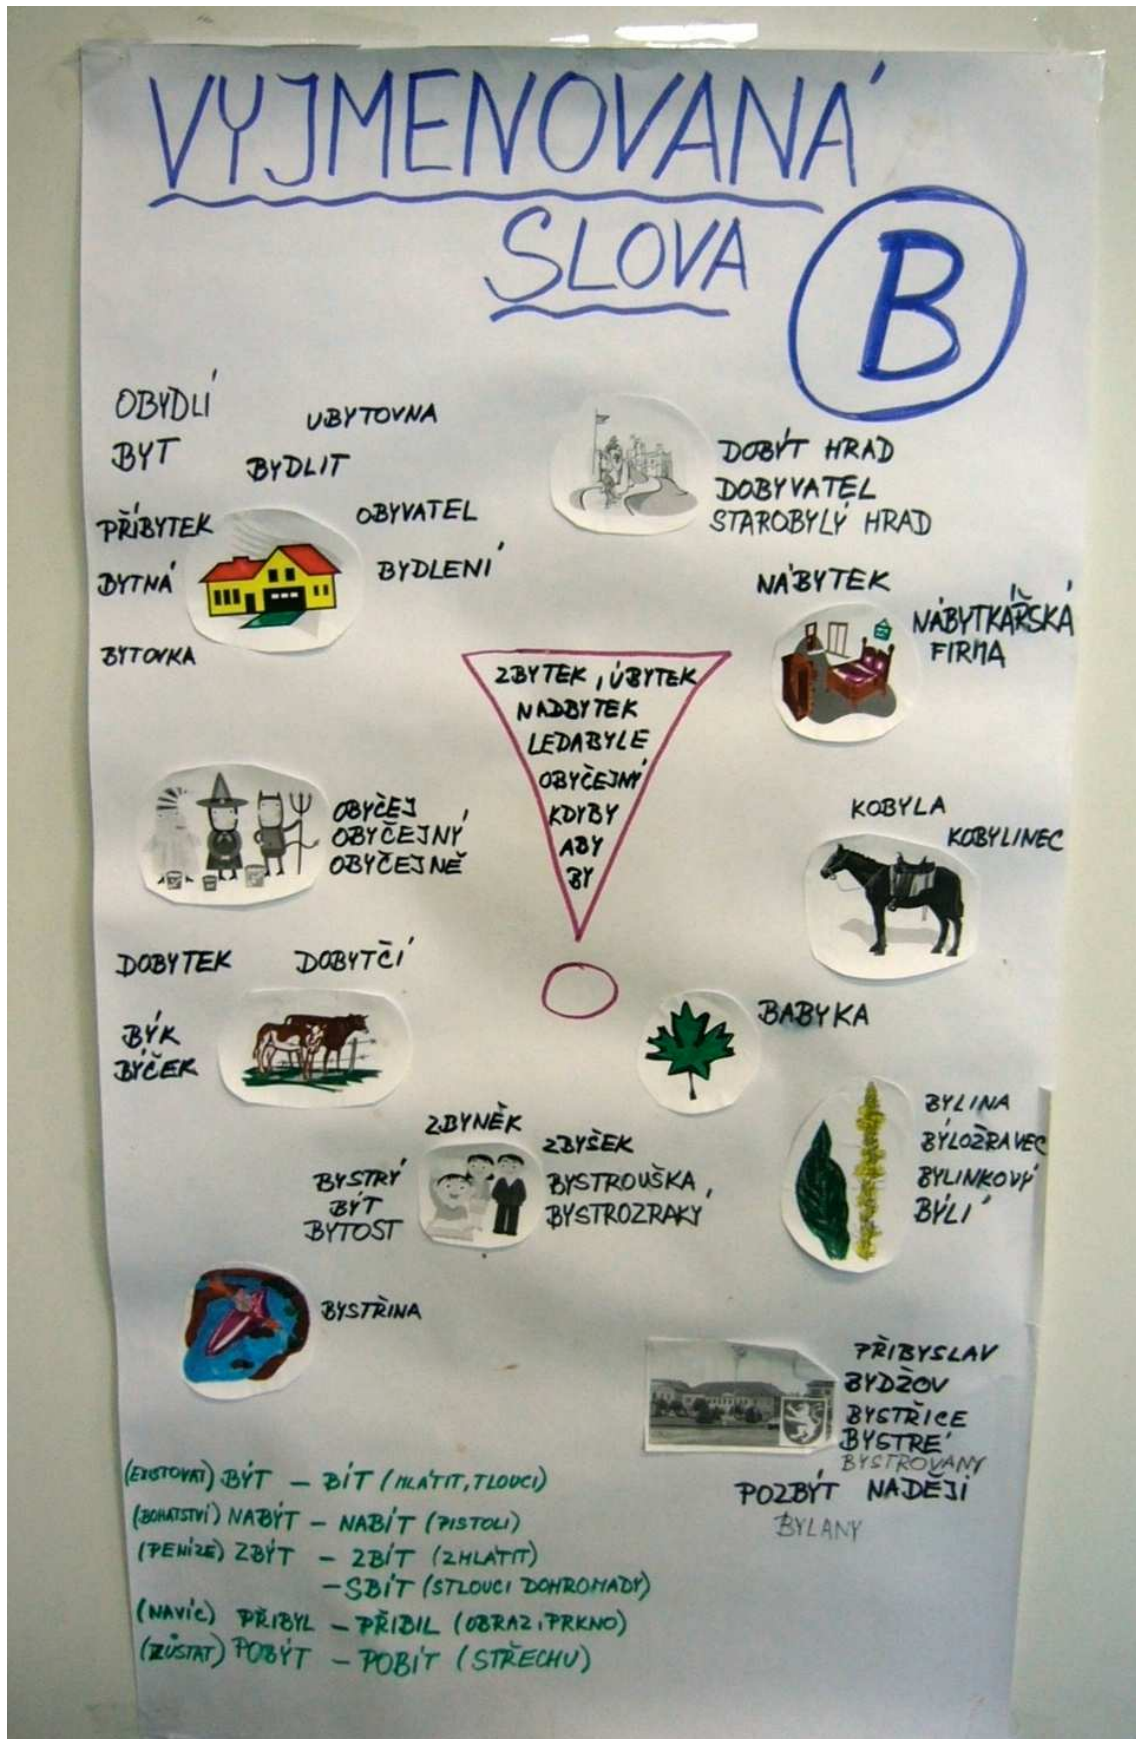 VYJMENOVANÁ
SLOVA
B
OBYDLÍ
UBYTOVNA
BYT
BYDLIT
PŘÍBYTEK
OBYVATEL
BYTNÁ
BYDLENÍ
BYTOVKA
DOBÝT HRAD
DOBYVATEL
STAROBYLÝ HRAD
NÁBYTEK
NÁBYTKÁŘSKÁ
FIRMA
ZBYTEK, ÚBYTEK
NADBYTEK
LEDABYLE
OBYČEJNÝ
KDYBY
ABY
BY
OBYČEJ
OBYČEJNÝ
OBYČEJNĚ
KOBYLA
KOBYLINEC
DOBYTEK
DOBYTČÍ
BÝK
BÝČEK
BABYKA
ZBYNĚK
ZBYŠEK
BYSTRÝ
BÝT
BYTOST
BYSTROUŠKA
BYSTROZRAKÝ
BYLINA
BÝLOŽRAVEC
BYLINKOVÝ
BÝLÍ
BYSTŘINA
PŘIBYSLAV
BYDŽOV
BYSTŘICE
BYSTRÉ
BYSTROVANY
POZBÝT NADĚJI
BYLANY
(EXISTOVAT) BÝT – BÍT (MLÁTIT, TLOUCI)
(BOHATSTVÍ) NABÝT – NABÍT (PISTOLI)
(PENÍZE) ZBÝT – ZBÍT (ZMLÁTIT)
– SBÍT (STLOUCI DOHROMADY)
(NAVÍC) PŘIBYL – PŘIBIL (OBRAZ, PRKNO)
(ZŮSTAT) POBÝT – POBÍT (STŘECHU)